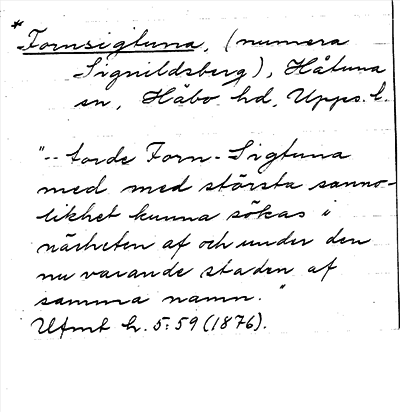 * Fornsigtuna, (numera
Signildsberg), Håtuna
sn, Håbo hd, Upps. l.
"-- torde Forn-Sigtuna
med med största sanno-
likhet kunna sökas i
närheten af och under den
nu varande staden af
samma namn."
Ufmt h. 5: 59 (1876).